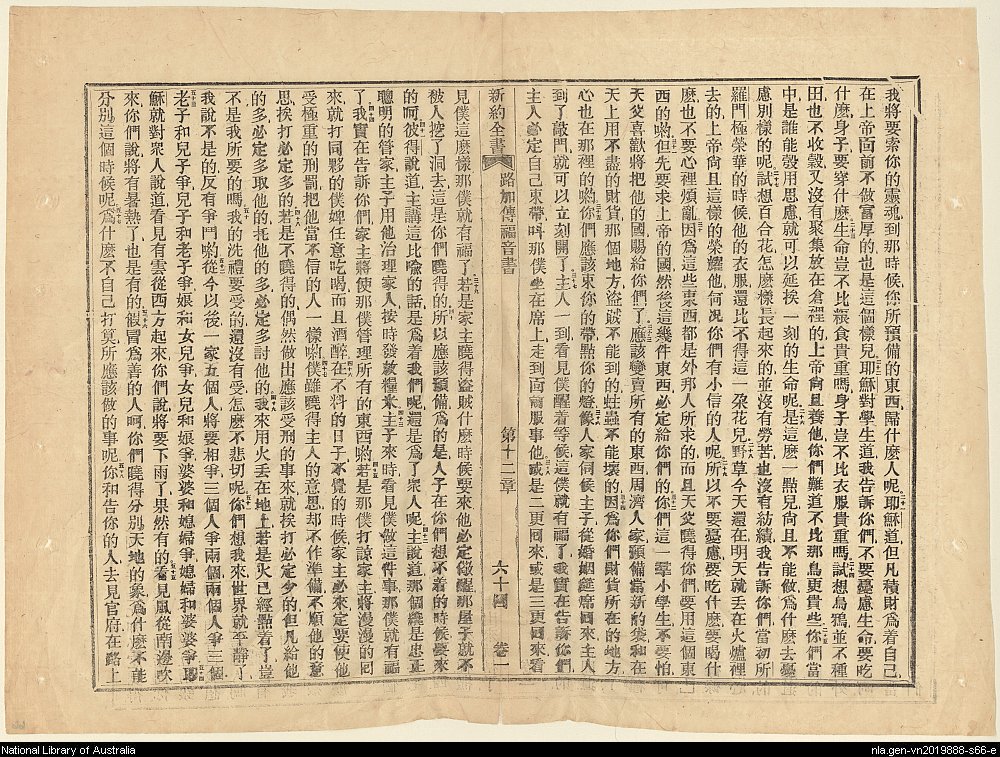 我將要索你的靈魂到那時候你所預備的東西歸什麼人呢耶穌道但凡積財爲着自己
在上帝面前不做富厚的也是這個樣兒耶穌對學生道我告訴你們不要憂慮生命要吃
什麼身子要穿什麼生命豈不比糧食貴重嗎身子豈不比衣服貴重嗎試想烏鴉並不種
田也不收穀又沒有聚集放在倉裡的上帝尙且養他你們難道不比那鳥更貴些你們當
中是誰能彀用思慮就可以延挨一刻的生命呢是這麼一點兒尙且不能做爲什麼去憂
慮別樣的呢試想百合花怎麼樣長起來的並沒有勞苦也沒有紡績我告訴你們當初所
羅門極榮華的時候他的衣服還比不得這一朶花兒野草今天還在明天就丢在火爐裡
去的上帝尙且這樣的榮耀他何况你們有小信的人呢所以不要憂慮要吃什麼要喝什
麼也不要心裡煩亂因爲這些東西都是外邦人所求的而且天父曉得你們要用這個東
西的喲但先要求上帝的國然後這幾件東西必定給你們的你們這一羣小學生不要怕
天父喜歡將把他的國賜給你們了應該變賣所有的東西周濟人家預備當新的袋和在
天上用不盡的財貨那個地方盜賊不能到的蛀蟲不能壞的因爲你們財貨所在的地方
心也在那裡的喲你們應該束你的帶點你的燈像人家伺候主子從婚姻筵席回來主人
到了敲門就可以立刻開了主人一到看見僕醒着等候這僕就有福了我實在告訴你們
主人必定自己束帶呌那僕坐在席上走到面前服事他或是二更回來或是三更回來看
新約全書 路加傳福音書 第十二章 六十四 卷一
見僕這麼樣那僕就有福了若是家主曉得盜賊什麼時候要來他必定儆醒那屋子就不
被人挖了洞去這是你們曉得的所以應該預備爲的是人子在你們想不着的時候要來
的呵彼得說道主講這比喩的話是爲着我們呢還是爲了衆人呢主說道那個纔是忠正
聰明的管家主子用他治理家人按時發放糧米主子來時看見僕做這件事那僕就有福
了我實在告訴你們家主將使那僕管理所有的東西喲若是那僕打諒家主將漫漫的囘
來就打同夥的僕婢任意吃喝而且酒醉在不料的日子不覺的時候家主必來定要使他
受極重的刑罰把他當不信的人一樣喲僕雖曉得主人的意思却不作準備不順他的意
思挨打必定多的若是不曉得的偶然做出應該受刑的事來就挨打必定少的但凡給他
的多必定多取他的托他的多必定多討他的我來用火丢在地上若是火已經點着了豈
不是我所要的嗎我的洗禮要受的還沒有受怎麼不悲切呢你們想我來世界就平靜了
我說不是的反有爭鬥喲從今以後一家五個人將要相爭三個人爭兩個兩個人爭三個
老子和兒子爭兒子和老子爭娘和女兒爭女兒和娘爭婆婆和媳婦爭媳婦和婆婆爭耶
穌就對衆人說道看見有雲從西方起來你們說將要下雨了果然有的看見風從南邊吹
來你們說將有暑熱了也是有的假冒爲善的人呵你們曉得分別天地的象爲什麼不能
分別這個時候呢爲什麼不自己打算所應該做的事呢你和告你的人去見官府在路上
National Library of Australia
nla.gen-vn2019888-s66-e